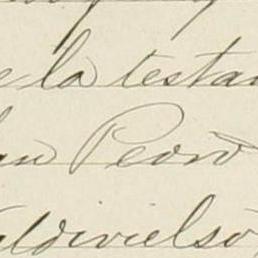 e la testa
an Pedro
aldivielso,